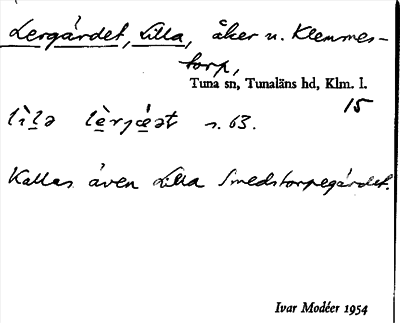 Lergärdet, Lilla, åker u. Klemmes-
torp,
Tuna sn, Tunaläns hd, Klm. l.
15
s. 63.
Kallas även Lilla Smedstorpegärdet.
Ivar Modéer 1954